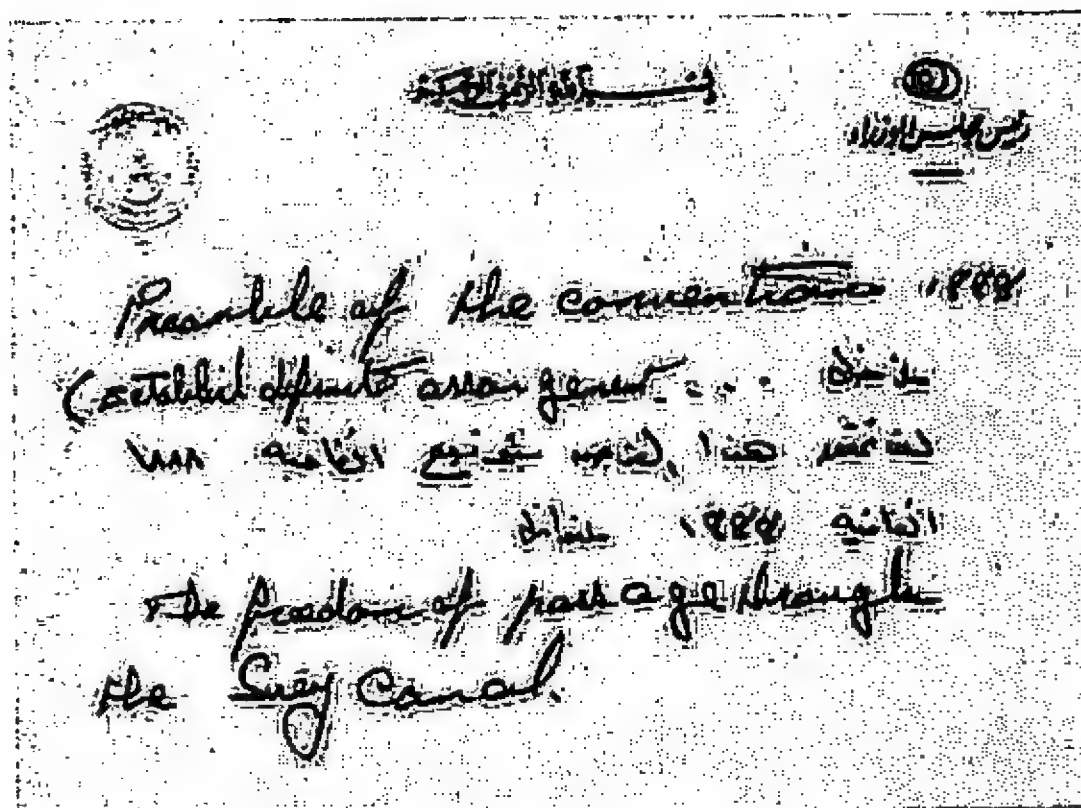 بسم الله الرحمن الرحيم
رئيس مجلس الوزراء
Preamble of the convention 1888
(establish definite arrangement ...
هذا النص اتفاقية ١٨٨٨
اتفاقية 1888
the freedom of passage through
the Suez Canal.